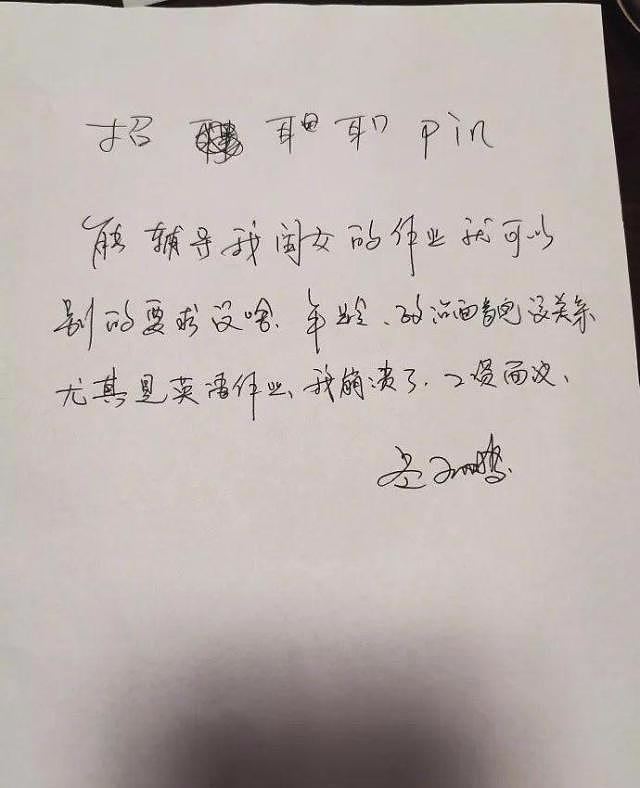 招 职 pin
能辅导我闺女的作业就可以
别的要求没啥、年龄、政治面貌没关系
尤其是英语作业、我崩溃了.工资面议、